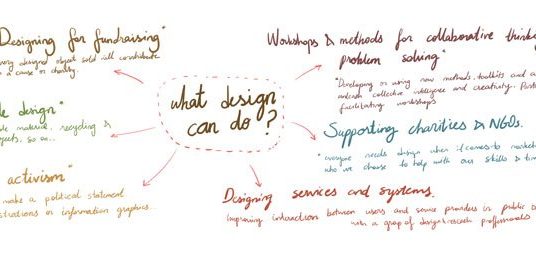 Designing for fundraising"
every designed object sold will contribute
a cause or charity.
design"
material, recycling &
so on..
activism"
make a political statement
or information graphics.
what design
can do?
Workshops & methods for collaborative
problem solving"
"Developing or using new methods, toolkits and
collective intelligence and creativity.
facilitating workshops
Supporting charities & NGOs.
"everyone needs design when it comes to
who we choose to help with our skills &
Designing services and systems.
Improving interaction between users and service providers in public
with a group of design research professionals